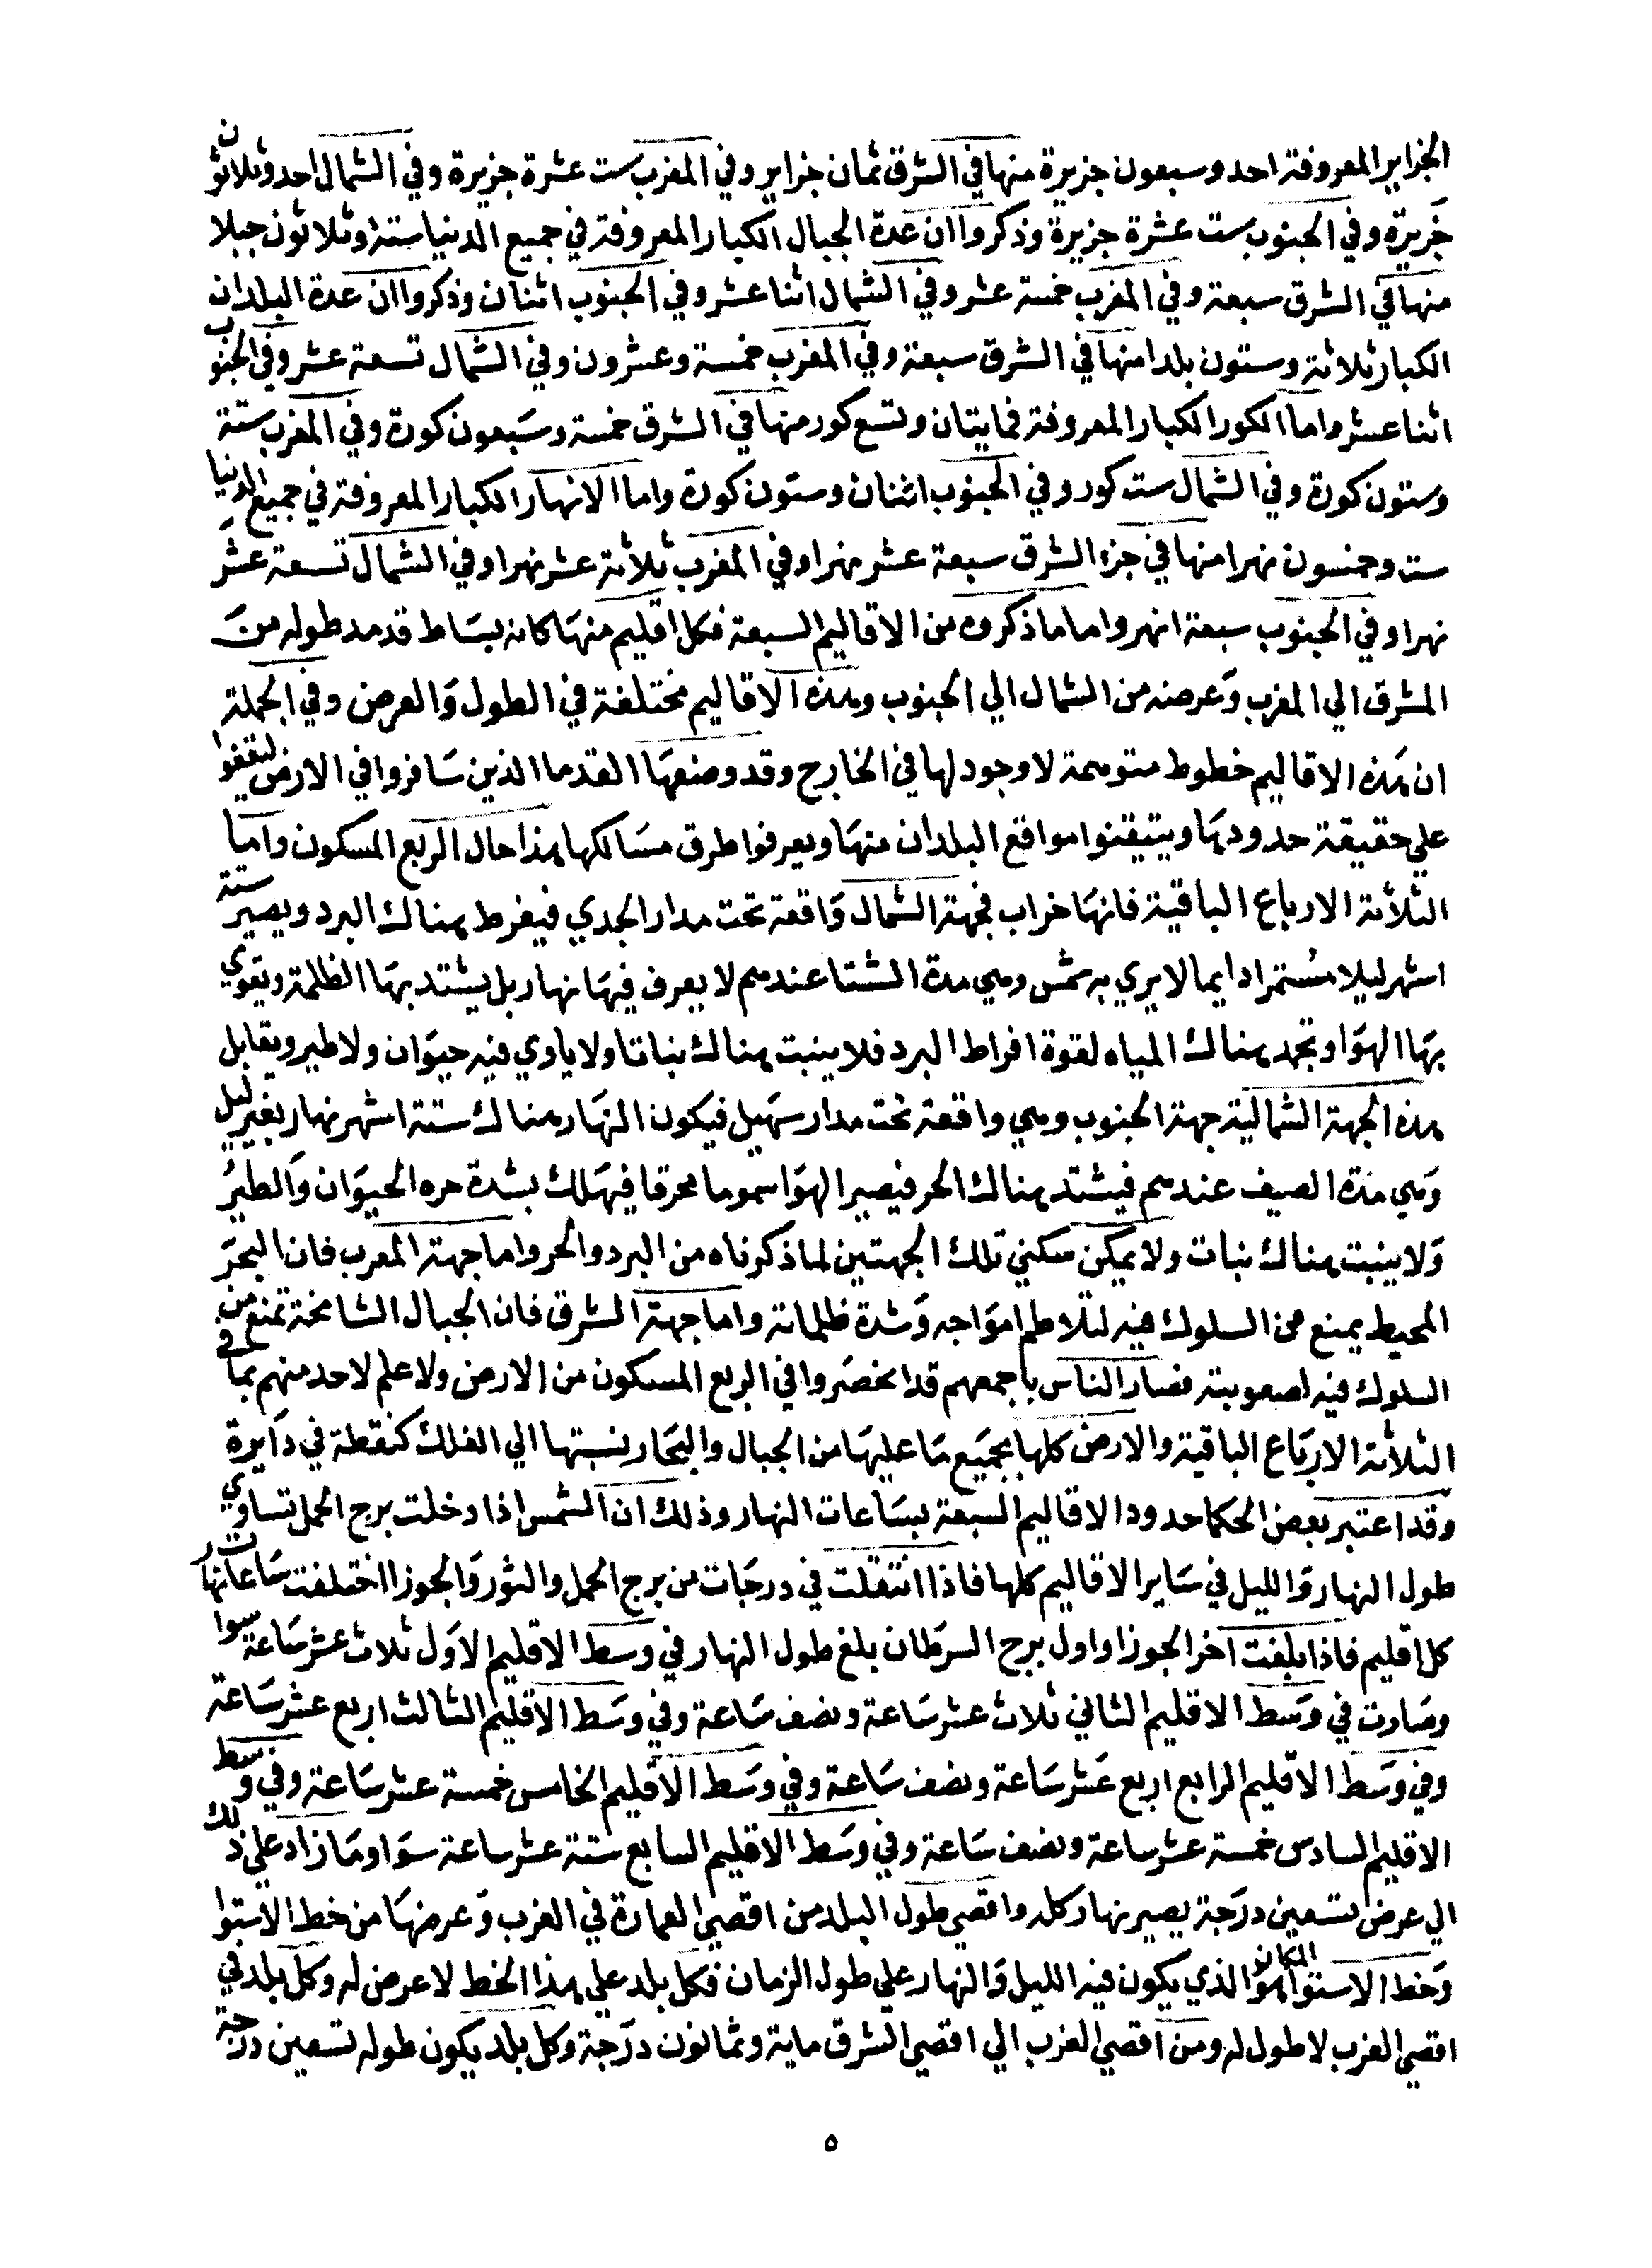 الجزاير المعروفة احد وسبعون جزيرة منها في الشرق ثمان جزاير وفي المغرب ست عشرة جزيرة وفي الشمال احد وثلاثون
جزيرة وفي الجنوب ست عشرة جزيرة وذكروا ان عدة الجبال الكبار المعروفة في جميع الدنيا ستة وثلاثون جبلا
منها في الشرق سبعة وفي المغرب خمسة عشر وفي الشمال اثنا عشر وفي الجنوب اثنان وذكروا ان عدة البلدان
الكبار ثلاثة وستون بلدا منها في الشرق سبعة وفي المغرب خمسة وعشرون وفي الشمال تسعة عشر وفي الجنوب
اثنا عشر واما الكور الكبار المعروفة فمايتان وتسع كور منها في الشرق خمسة وسبعون كورة وفي المغرب ستة
وستون كورة وفي الشمال ست كور وفي الجنوب اثنان وستون كورة واما الانهار الكبار المعروفة في جميع الدنيا
ست وخمسون نهرا منها في جزء الشرق سبعة عشر نهرا وفي المغرب ثلاثة عشر نهرا وفي الشمال تسعة عشر
نهرا وفي الجنوب سبعة انهر واما ما ذكروه من الاقاليم السبعة فكل اقليم منها كانه بساط قد مد طوله من
المشرق الي المغرب وعرضه من الشمال الي الجنوب وهذه الاقاليم مختلفة في الطول والعرض وفي الجملة
ان هذه الاقاليم خطوط متوهمة لا وجود لها في الخارج وقد وضعها القدما الذين سافروا في الارض ليقفوا
علي حقيقة حدودها ويتيقنوا مواقع البلدان منها ويعرفوا طرق مسالكها هذا حال الربع المسكون واما
الثلاثة الارباع الباقية فانها خراب فجهة الشمال واقعة تحت مدار الجدي فيفرط هناك البرد ويصير ستة
اشهر ليلا مستمرا دايما لا يري به شمس وهي مدة الشتا عندهم لا يعرف فيها نهار بل يشتد بها الظلمة ويقوي
بها الهوا وتجمد هناك المياه لقوة افراط البرد فلا ينبت هناك نباتا ولا ياوي فيه حيوان ولا طير ويقابل
هذه الجهة الشمالية جهة الجنوب وهي واقعة تحت مدار سهيل فيكون النهار هناك ستة اشهر نهار بغير ليل
وهي مدة الصيف عندهم فيشتد هناك الحر فيصير الهوا سموما محرقا فيهلك بشدة حره الحيوان والطير
ولا ينبت هناك نبات ولا يمكن سكني تلك الجهتين لما ذكرناه من البرد والحر واما جهة المغرب فان البحر
المحيط يمنع من السلوك فيه لتلاطم امواجه وشدة ظلماته واما جهة الشرق فان الجبال الشامخة تمنع من
السلوك فيه لصعوبته فصار الناس باجمعهم قد انحصروا في الربع المسكون من الارض ولا علم لاحد منهم بما في
الثلاثة الارباع الباقية والارض كلها بجميع ما عليها من الجبال والبحار نسبتها الي الفلك كنقطة في دايرة
وقد اعتبر بعض الحكما حدود الاقاليم السبعة بساعات النهار وذلك ان الشمس اذا دخلت برج الحمل تساوي
طول النهار والليل في ساير الاقاليم كلها فاذا انتقلت في درجات من برج الحمل والثور والجوزا اختلفت ساعات نهار
كل اقليم فاذا بلغت اخر الجوزا واول برج السرطان بلغ طول النهار في وسط الاقليم الاول ثلاث عشر ساعة سوا
وصارت في وسط الاقليم الثاني ثلاث عشر ساعة ونصف ساعة وفي وسط الاقليم الثالث اربع عشر ساعة
وفي وسط الاقليم الرابع اربع عشر ساعة ونصف ساعة وفي وسط الاقليم الخامس خمسة عشر ساعة وفي وسط
الاقليم السادس خمسة عشر ساعة ونصف ساعة وفي وسط الاقليم السابع ستة عشر ساعة سوا وما زاد علي ذلك
الي عرض تسعين درجة يصير نهار كله واقصي طول البلد من اقصي العمارة في الغرب وعرضها من خط الاستوا
وخط الاستوا هو المكان الذي يكون فيه الليل والنهار علي طول الزمان فكل بلد علي هذا الخط لا عرض له وكل بلد في
اقصي الغرب لا طول له ومن اقصي الغرب الي اقصي الشرق ماية وثمانون درجة وكل بلد يكون طوله تسعين درجة
٥